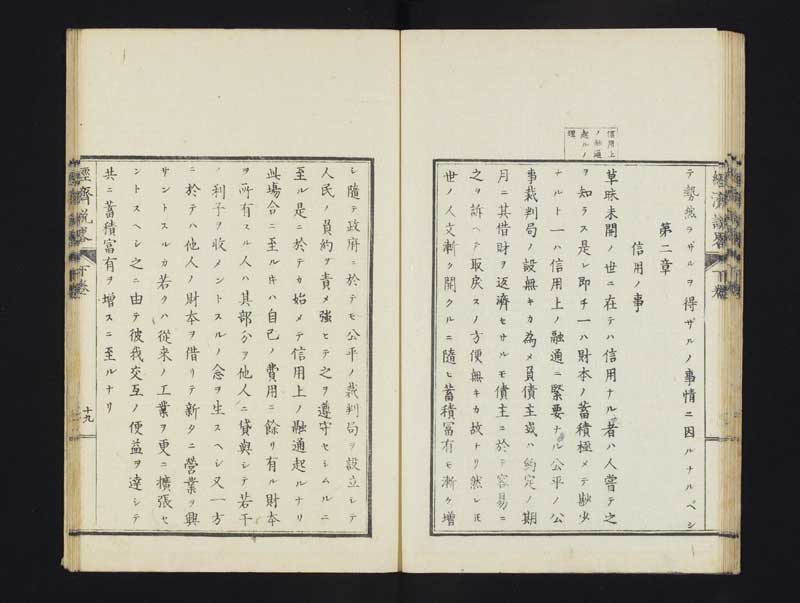 テ勢然ラザルヲ得ザルノ事情ニ因ルナルベシ
第二章
信用ノ事
信用上
ノ融通
起ルノ
理
草昧未開ノ世ニ在テハ信用ナル者ハ人嘗テ之
ヲ知ラス是レ即チ一ハ財本ノ蓄積極メテ尠少
ナルト一ハ信用上ノ融通ニ緊要ナル公平ノ公
事裁判局ノ設無キカ為メ負債主或ハ約定ノ期
月ニ其借財ヲ返濟セサルモ債主ニ於テ容易ニ
之ヲ訴ヘテ取戻スノ方便無キカ故ナリ然レトモ
世ノ人文漸ク開クルニ隨ヒ蓄積富有モ漸ク增
シ隨テ政府ニ於テモ公平ノ裁判局ヲ設立シテ
人民ノ負約ヲ責メ強ヒテ之ヲ遵守セシムルニ
至ル是ニ於テカ始メテ信用上ノ融通起ルナリ
此場合ニ至ル時ハ自己ノ費用ニ餘リ有ル財本
ヲ所有スル人ハ其部分ヲ他人ニ貸與シテ若干
ノ利子ヲ收メントスルノ念ヲ生スヘシ又一方
ニ於テハ他人ノ財本ヲ借リテ新タニ營業ヲ興
サントスルカ若クハ從來ノ工業ヲ更ニ擴張セ
ントスヘシ之ニ由テ彼我交互ノ便益ヲ達シテ
共ニ蓄積富有ヲ增スニ至ルナリ
經齊説畧
下卷
十九